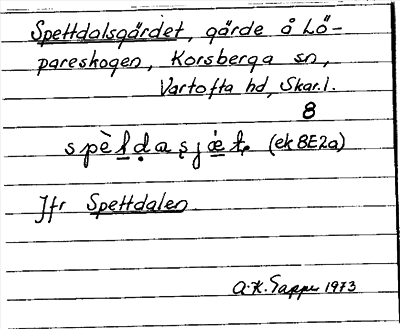 Spettdalsgärdet, gärde å Lö-
pareskogen, Korsberga sn,
Vartofta hd, Skar.l.
8
(ek 8E2a)
Jfr Spettdalen
A.K. Tapper 1973